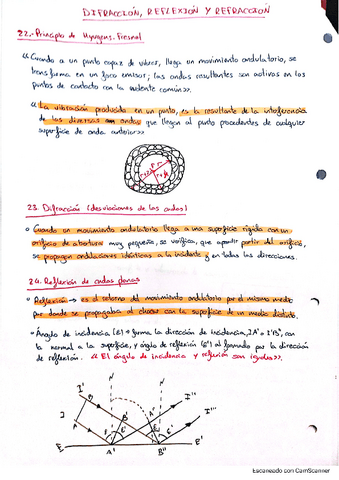 DIFRACCIÓN, REFLEXIÓN Y REFRACCIÓN
22.-Principio de Huygens. Fresnel
<<Cuando a un punto capaz de vibrar, llega un movimiento ondulatorio, se
transforma en un foco emisor; las ondas resultantes son activas en los
puntos de contacto con la envolvente común>>.
<<La vibración producida en un punto, es la resultante de la interferencia
de las diversas ondas que llegan al punto procedentes de cualquier
superficie de onda anterior>>
23. Difracción (desviaciones de las ondas)
Cuando un movimiento ondulatorio llega a una superficie rígida con un
orificio de abertura muy pequeña, se verifica, que a partir del orificio,
se propagan ondulaciones idénticas a la incidente y en todas las direcciones.
24. Reflexión de ondas planas
Reflexión → es el retorno del movimiento ondulatorio por el mismo medio
por donde se propagaba al chocar con la superficie de un medio distinto.
Ángulo de incidencia (E) → forma la dirección de incidencia, IA' o I'B'', con
la normal a la superficie, y ángulo de reflexión (E') al formado por la dirección
de reflexión. <<El ángulo de incidencia y reflexión son iguales>>.
N N
I' I'''
I I''
B B'
A
E A' B'' E'
Escaneado con CamScanner